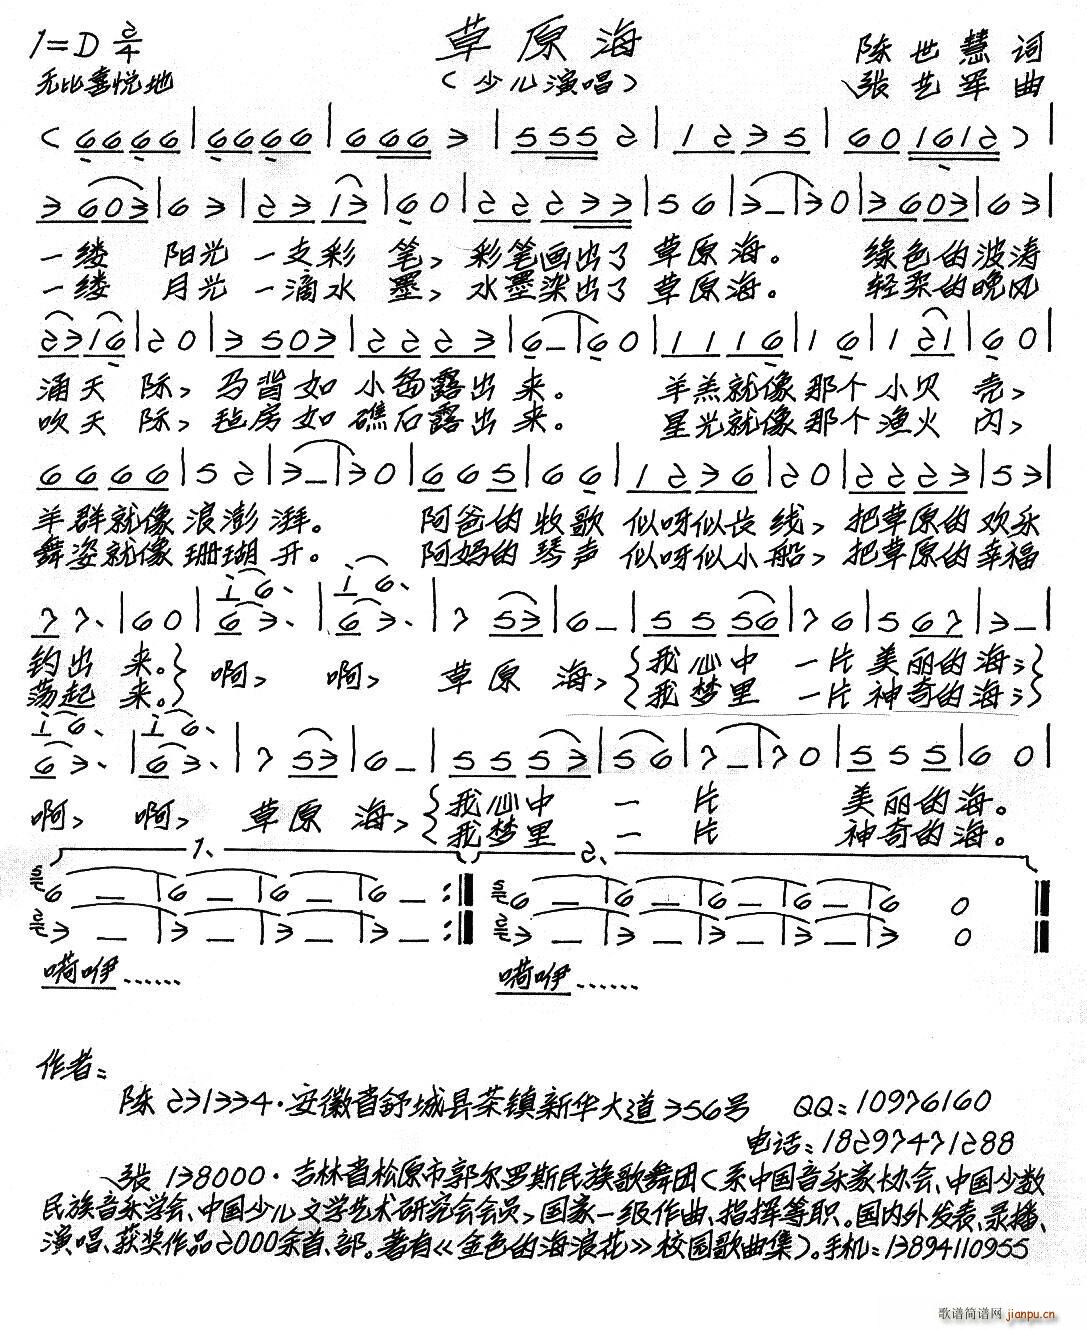 1=D 2/4 草原海 陈世慧 词
无比喜悦地 (少儿演唱) 张艺军 曲
( 6666 | 6666 | 666 3 | 555 2 | 1 2 3 5 | 60 1612 ) |
3 603 | 6 3 | 23 13 | 6 0 | 2 2 2 3 3 | 5 6 | 3 – | 3 0 | 3 603 | 6 3 |
一缕 阳光 一支彩 笔, 彩笔画出了 草原海。 绿色的波涛
一缕 月光 一滴水 墨, 水墨染出了 草原海。 轻柔的晚风
2316 | 2 0 | 3 503 | 2 2 2 3 | 6 – | 6 0 | 1 1 1 6 | 1 6 | 1 21 | 6 0 |
涌天 际, 马背如 小岛露出 来。 羊羔就像那个小贝 壳,
吹天 际, 毡房如 礁石露出 来。 星光就像那个渔火 闪,
6 6 6 6 | 5 2 | 3 – | 3 0 | 6 6 5 | 6 6 | 1 2 3 6 | 2 0 | 2 2 2 3 | 5 3 |
羊群就像 浪澎 湃。 阿爸的牧歌 似呀似长 线, 把草原的欢乐
舞姿就像 珊瑚 开。 阿妈的琴声 似呀似小 船, 把草原的幸福
i 6、 i 6、
7 7、 | 6 0 | 6 3、 | 6 3、 | 7 53 | 6 – | 5 5 56 | 7 6 | 5 67 | 3 – |
钓出 来。} 啊, 啊, 草原 海, {我心中 一片美丽的海;}
荡起 来。} {我梦里 一片神奇的海;}
i 6、 i 6、
6 3、 | 6 3、 | 7 53 | 6 – | 5 5 5 3 | 5 6 | 7 – | 7 0 | 5 5 5 | 6 0 |
啊, 啊, 草原 海, {我心中 一 片 美丽的海。
{我梦里 一 片 神奇的海。
1、 2、
6 – | 6 – | 6 – | 6 – :‖ 6 – | 6 – | 6 – | 6 – | 6 0 ‖
3 – | 3 – | 3 – | 3 – :‖ 3 – | 3 – | 3 – | 3 – | 3 0 ‖
嗬咿…… 嗬咿……
作者:
陈 231334·安徽省舒城县茶镇新华大道356号 QQ:10976160
电话:18297471288
张 138000·吉林省松原市郭尔罗斯民族歌舞团(系中国音乐家协会、中国少数
民族音乐学会、中国少儿文学艺术研究会会员,国家一级作曲、指挥等职。国内外发表、录播、
演唱、获奖作品2000余首、部。著有《金色的海浪花》校园歌曲集)。手机:13894110955
歌谱简谱网 jianpu.cn